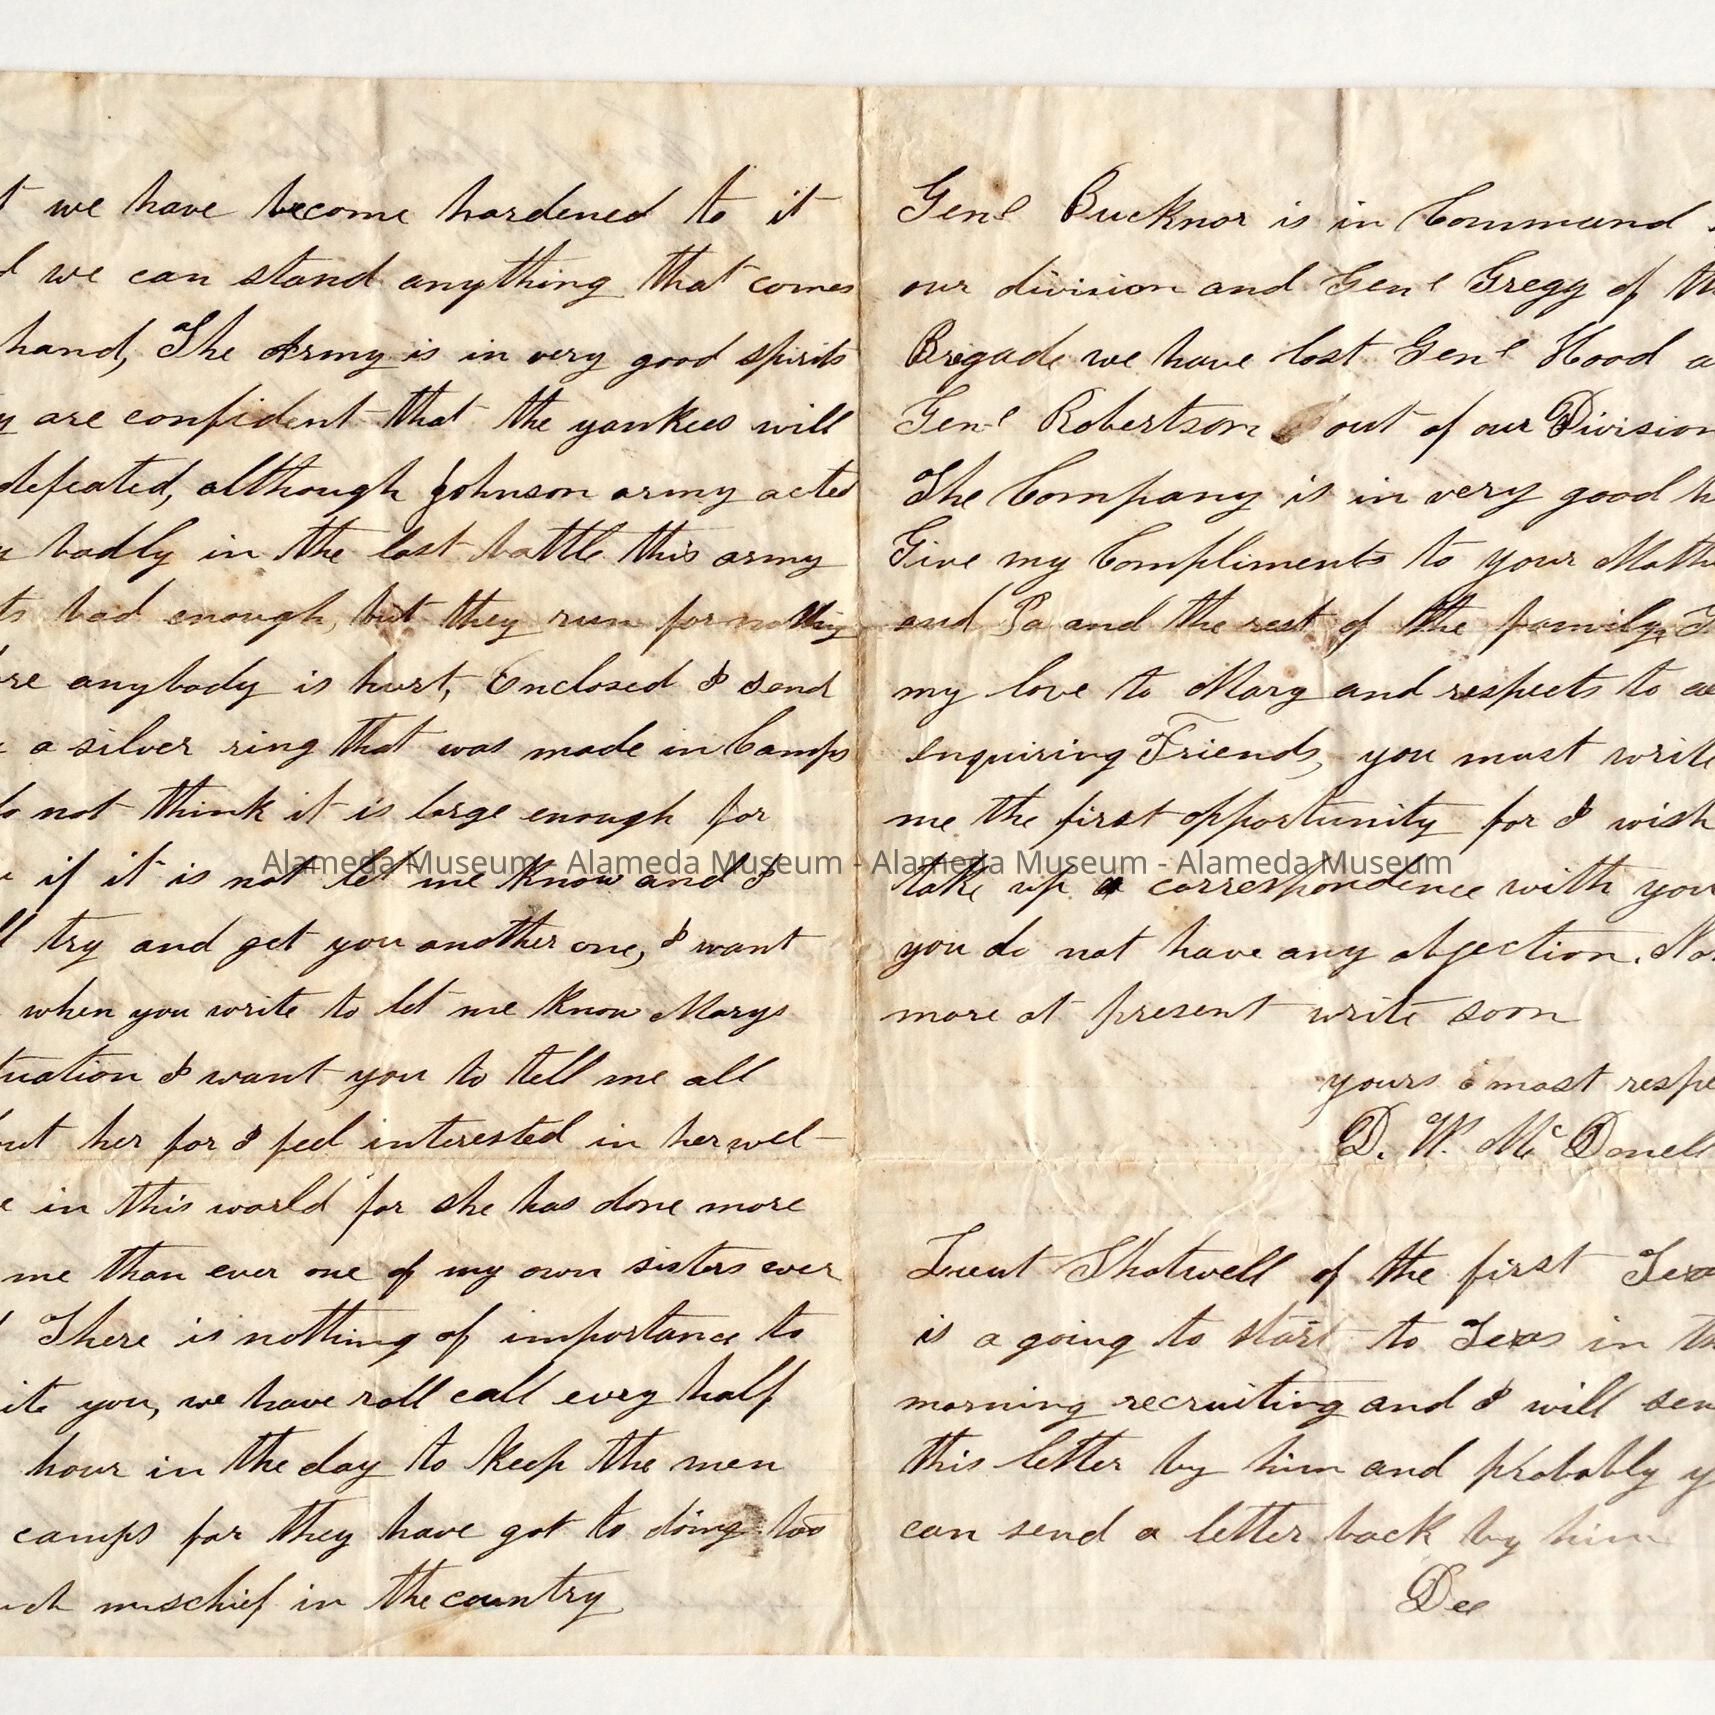 t we have become hardened to it
d we can stand anything that comes
hand, The Army is in very good spirits
y are confident that the yankees will
defeated, although Johnson army acted
y badly in the last battle this army
ts bad enough, but they run for nothing
re anybody is hurt, Enclosed I send
a silver ring that was made in Camps
do not think it is large enough for
if it is not let me know and I
ll try and get you another one, I want
when you write to let me know Marys
tuation I want you to tell me all
out her for I feel interested in her wel-
e in this world for she has done more
me than ever one of my own sisters ever
There is nothing of importance to
ite you, we have roll call evry half
hour in the day to keep the men
camps for they have got to doing too
ch mischief in the country
Genl Bucknor is in Command
our division and Genl Gregg of th
Brigade we have lost Genl Hood a
Genl Robertson out of our Division
The Company is in very good h
Give my Compliments to your Moth
and Pa and the rest of the family
my love to Mary and respects to
enquiring Friends, you must write
me the first opportunity for I wish
take up a correspondence with you
you do not have any objection. No
more at present write soon
yours most respe
D. W. McDonell
Lieut Shotwell of the first Texa
is a going to start to Texas in th
morning recruiting and I will sen
this letter by him and probably y
can send a letter back by him
Dee
Alameda Museum - Alameda Museum - Alameda Museum - Alameda Museum